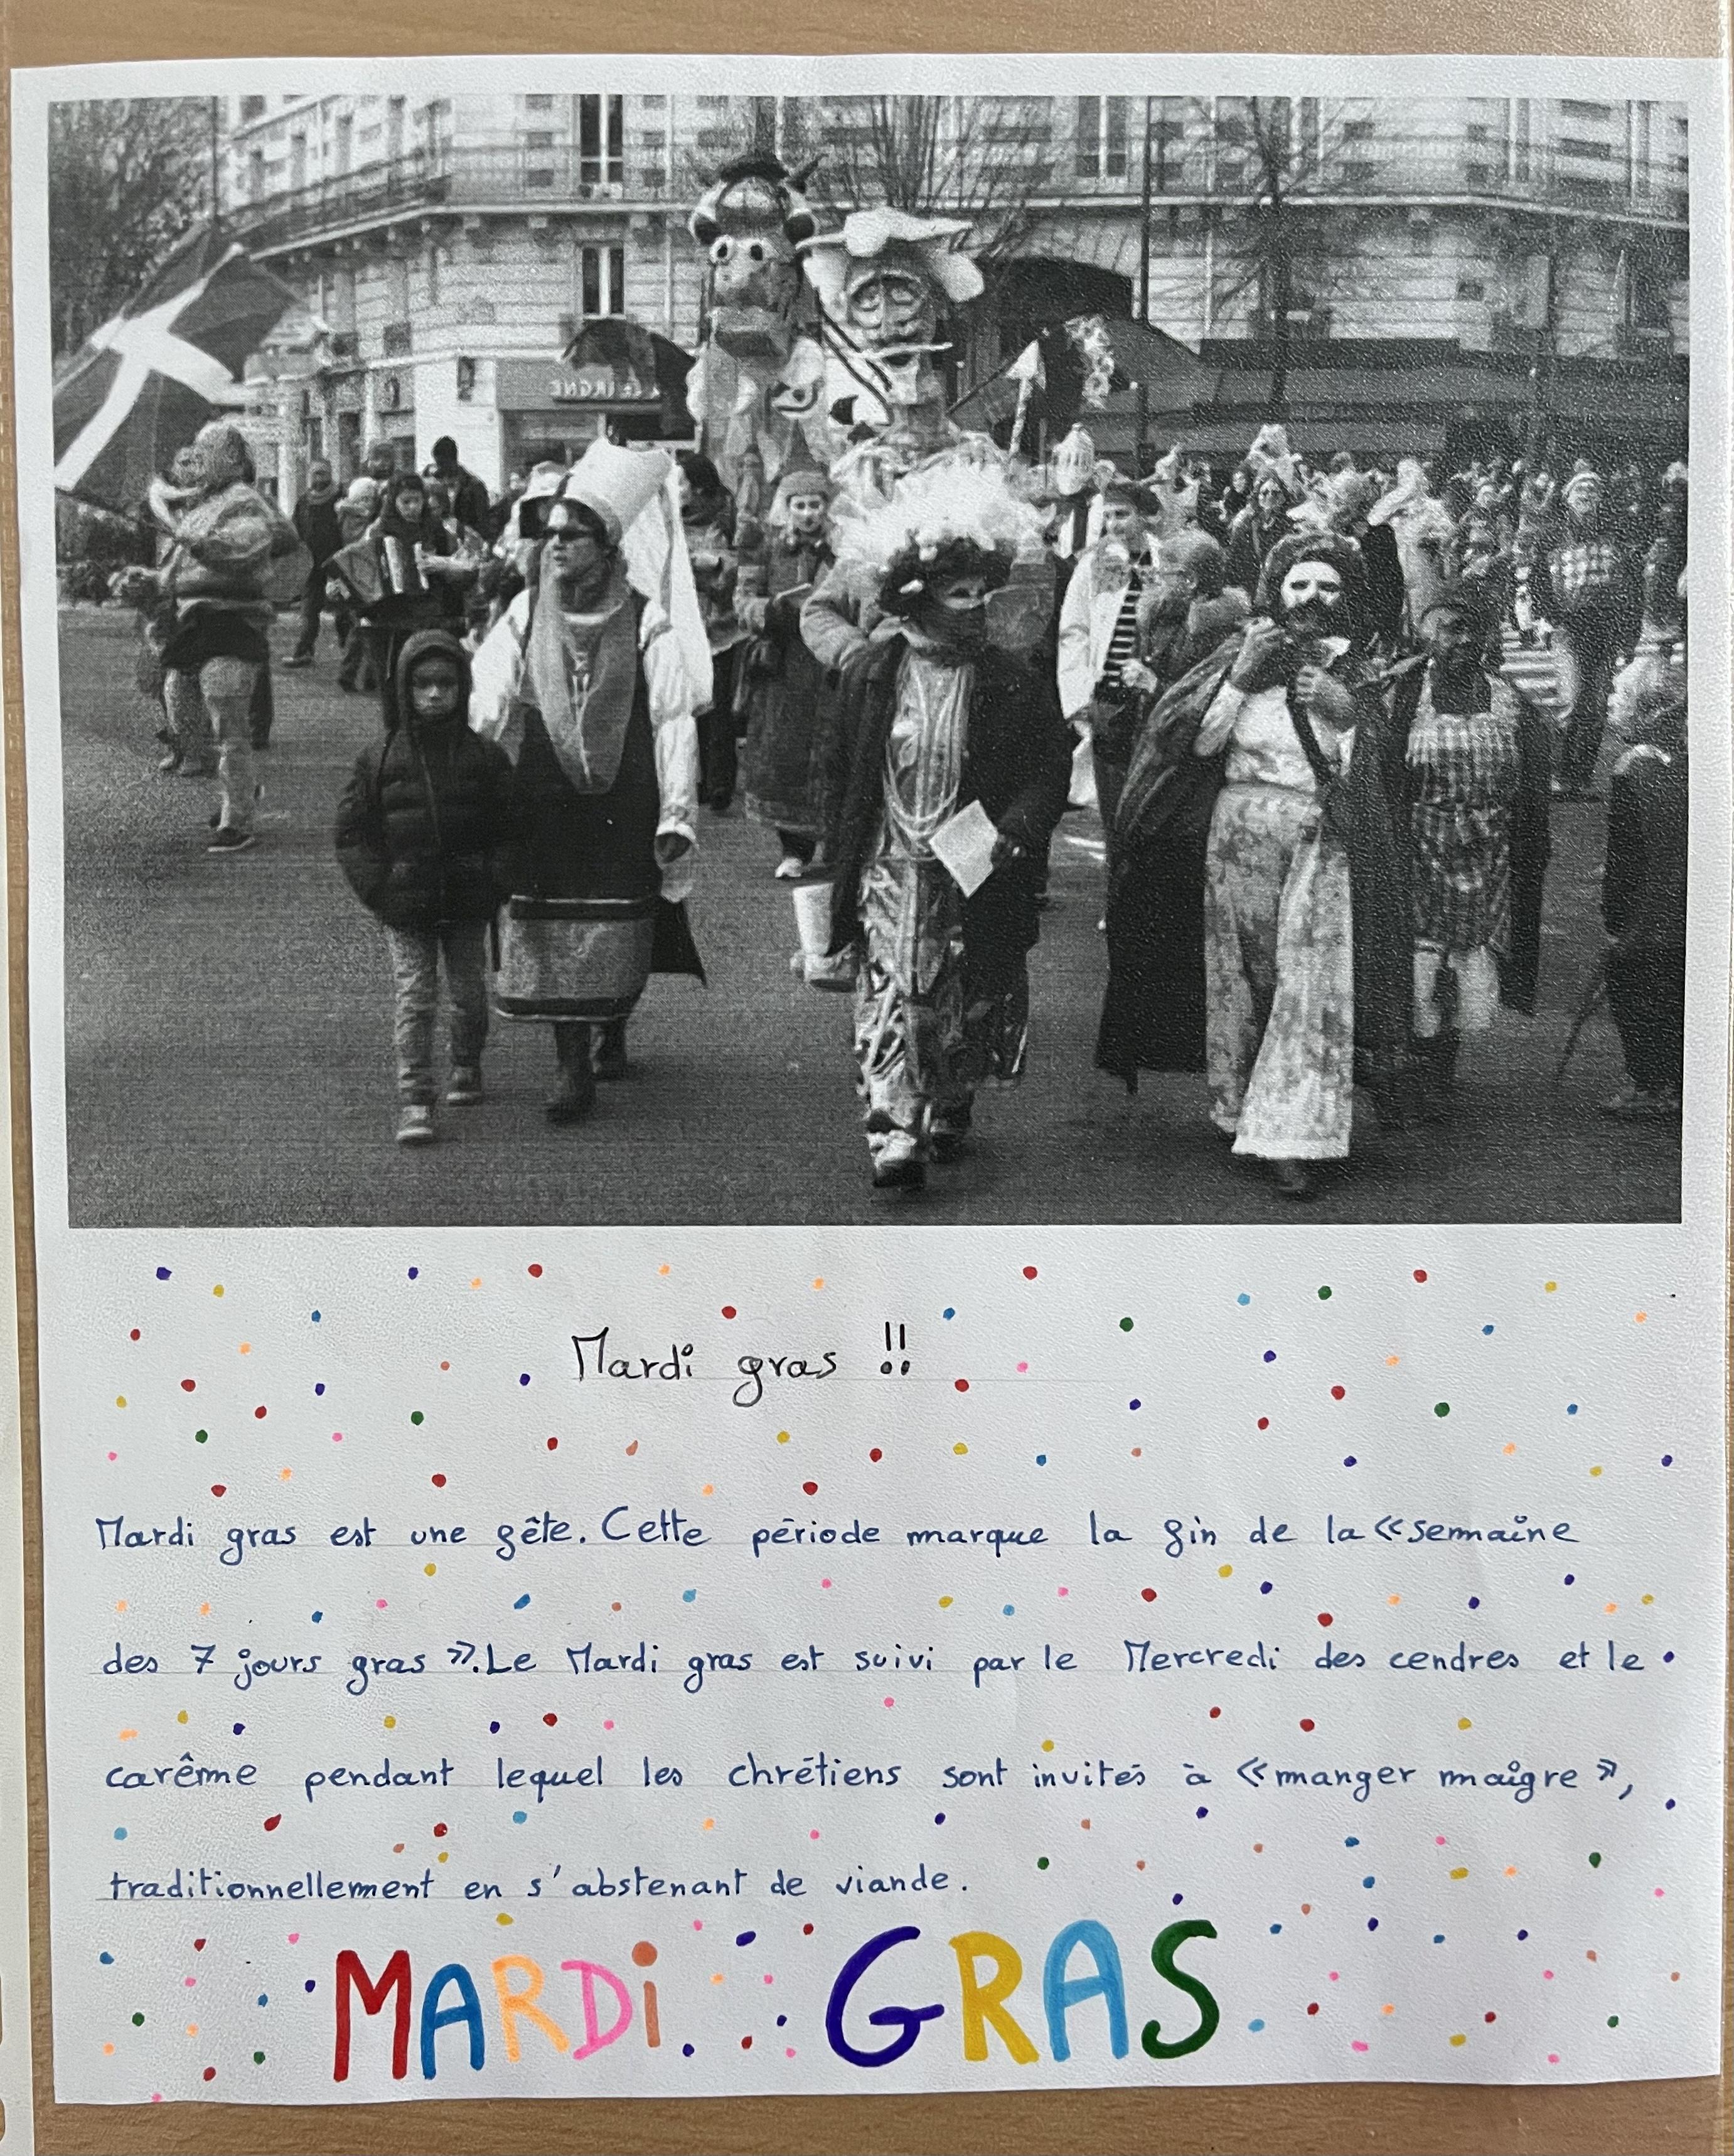 Mardi gras !!
Mardi gras est une fête. Cette période marque la fin de la « semaine
des 7 jours gras ». Le Mardi gras est suivi par le Mercredi des cendres et le
carême pendant lequel les chrétiens sont invités à « manger maigre »,
traditionnellement en s'abstenant de viande.
MARDi GRAS